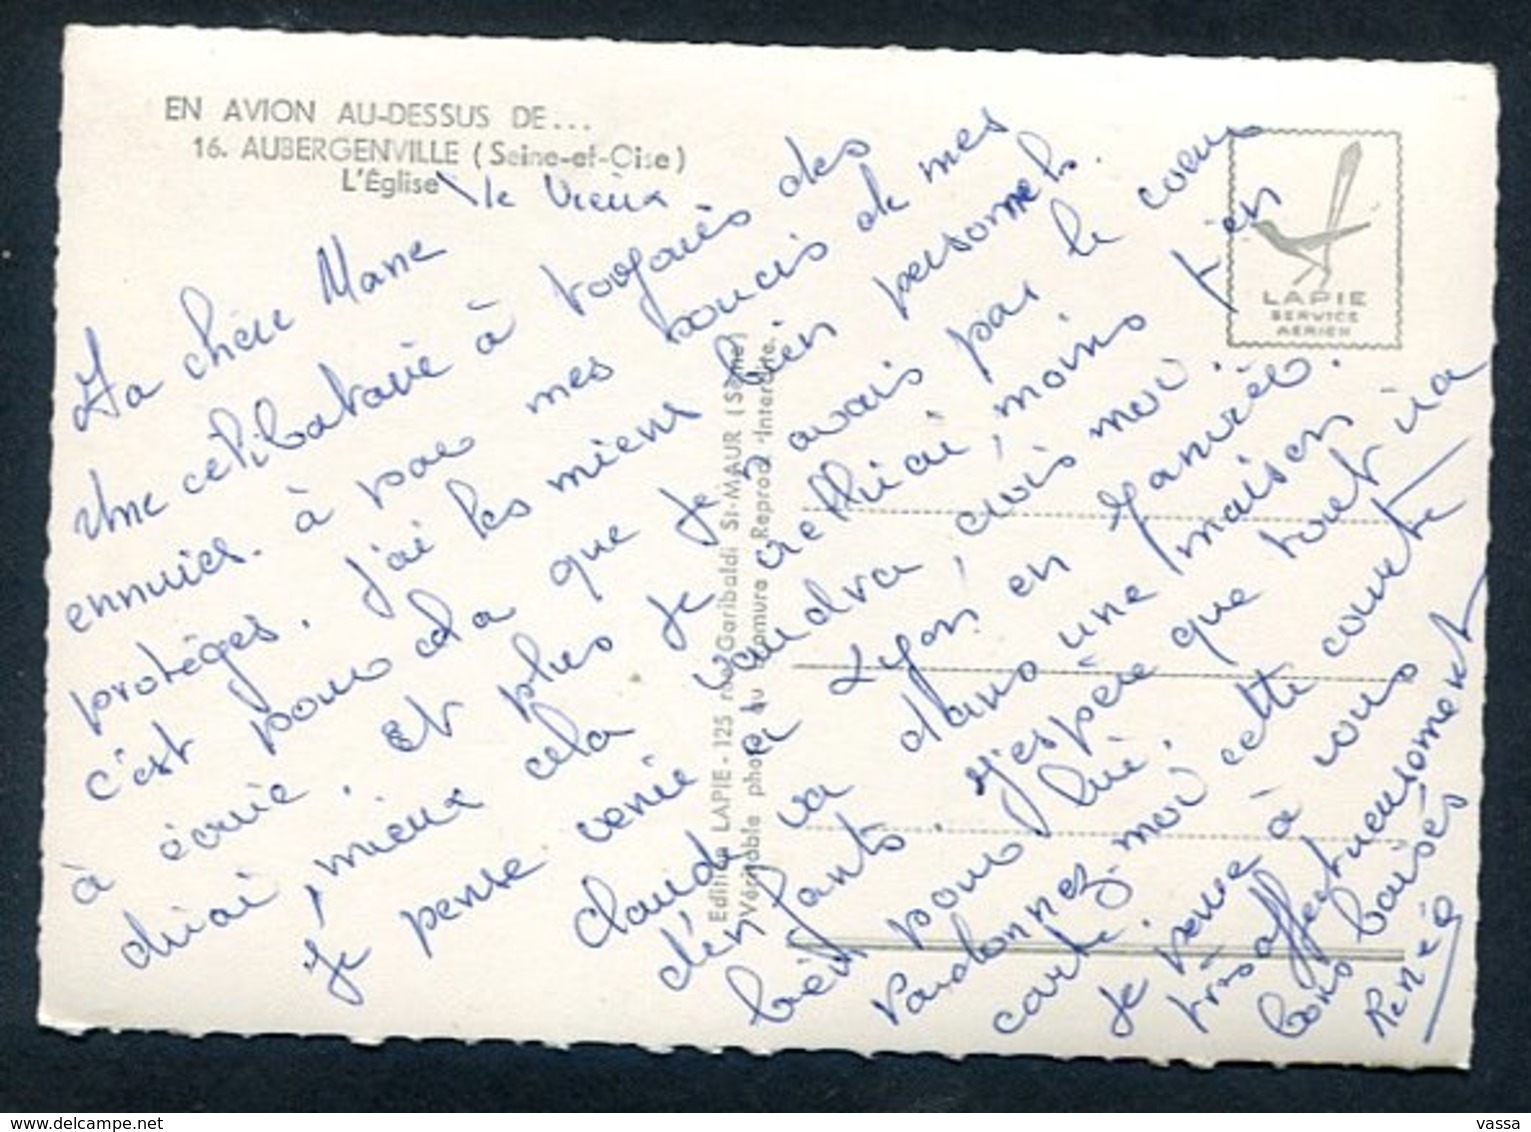 EN AVION AU-DESSUS DE...
16. AUBERGENVILLE (Seine-et-Oise)
L'Église
le vieux
Ma chère Marie
Une célibataire à toujours des
ennuies. à par mes soucis de mes
protèges. j'ai les miens bien personnels.
c'est pour cela que je n'avais pas le coeur
à écrire. Et plus je réfléchiai, moins j'en
dirai, mieux cela vaudra, crois moi.
Je pense venir à Lyon en Janvier.
Claud va dans une maison
d'enfants. J'espère que tout ira
bien pour lui.
Pardonnez-moi cette courte
carte.
Je pense à vous
très affectueusement
bons baisés
Renée
Editions LAPIE - 125 rue Garibaldi St-MAUR (Seine)
Véritable photo au Bromure - Reprod. Interdite.
LAPIE
SERVICE
AERIEN
vassa